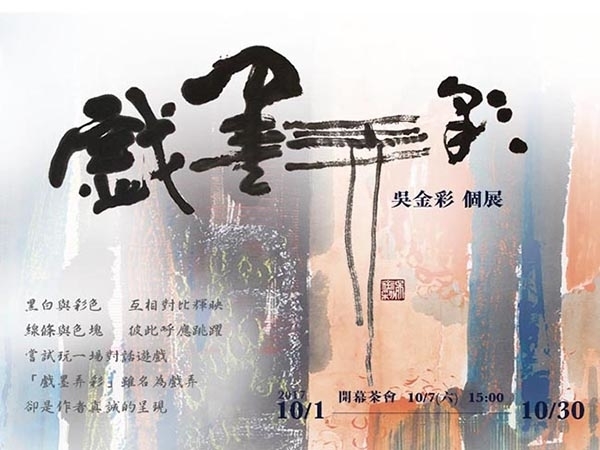 戲墨弄彩
吳金彩 個展
黑白與彩色 互相對比輝映
線條與色塊 彼此呼應跳躍
嘗試玩一場對話遊戲
「戲墨弄彩」雖名為戲弄
卻是作者真誠的呈現
2017
10/1 開幕茶會 10/7(六) 15:00 10/30